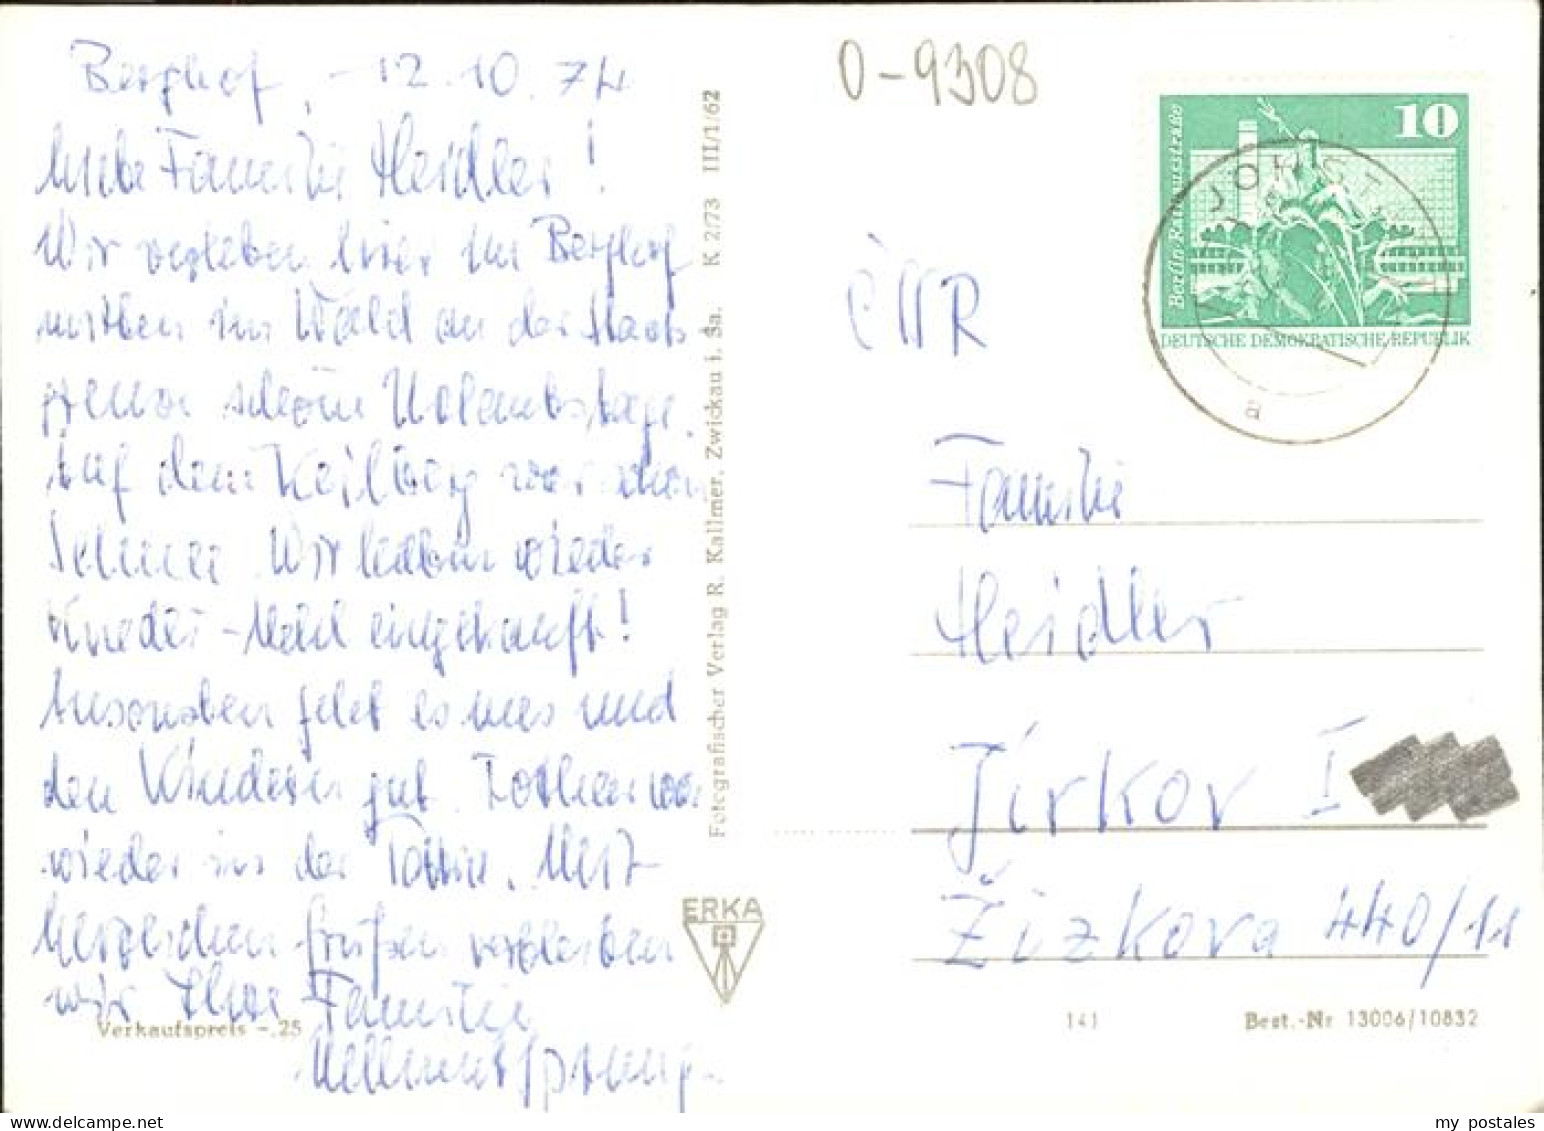 Berghof, -12.10.74
Liebe Familie Heidler!
Wir verleben hier im Berghof
mitten im Wald an der Staats
grenze schöne Urlaubstage.
Auf dem Keilberg war schon
Schnee. Wir haben wieder
Knedel-Mehl eingekauft!
Ansonsten geht es uns und
den Kindern gut. war
wieder in der Tatra. Mit
herzlichen Grüßen verbleiben
wir Ihre Familie
Verkaufspreis -.25
Fotografischer Verlag R. Kallmer, Zwickau i. Sa. K 2/73 III/1/62
ERKA
0-9308
ČSSR
10
Berlin Rathausstraße
DEUTSCHE DEMOKRATISCHE REPUBLIK
JÖHST
a
Familie
Heidler
Jirkov I
Žizkova 440/11
141
Best.-Nr 13006/10832
my postales